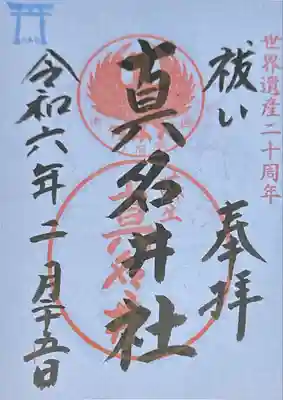 世界遺産二十周年
祓い
奉拝
真名井社
令和六年二月十五日